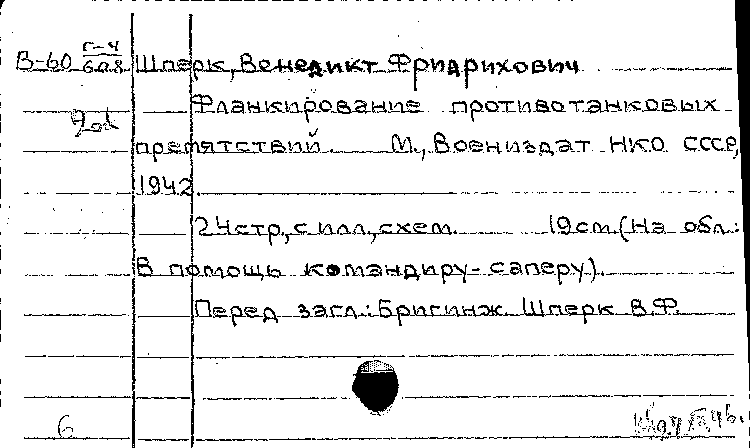 В-60 Г-4 Шперк, Венедикт Фридрихович
Фланкирование противотанковых
препятствий. М., Воениздат НКО СССР,
1942.
24стр., с илл., схем. 19см. (На обл.:
В помощь командиру-саперу).
Перед загл.: Бригинж. Шперк В.Ф.
6